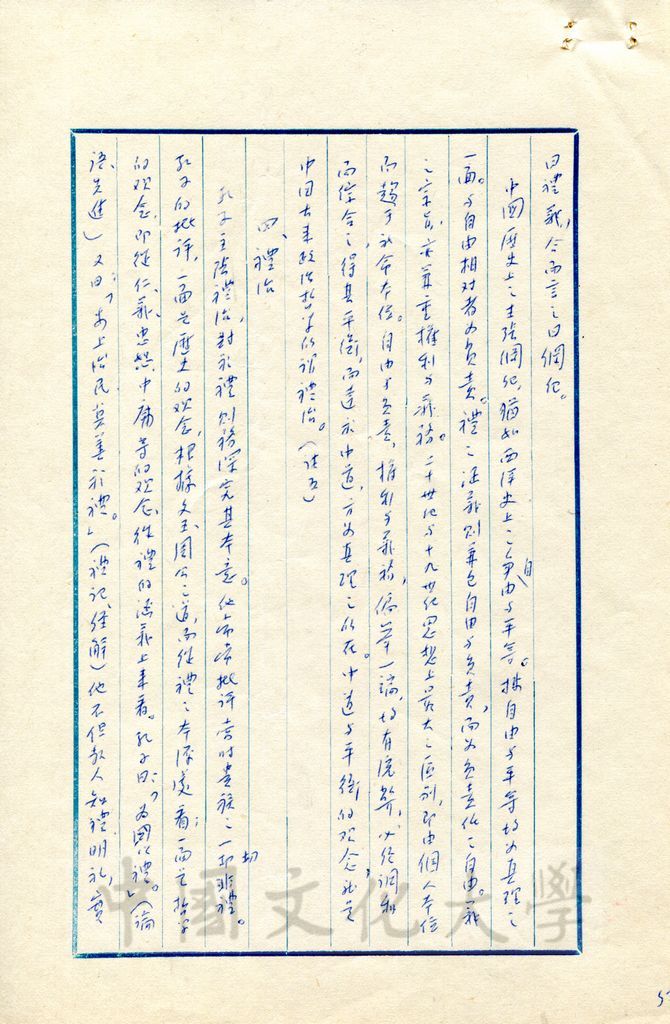 曰禮義，今而言之曰綱紀。
中國歷史上之主張綱紀，猶如西洋史上之爭自由與平等。按自由與平等均為真理之
一面。與自由相對者為負責。禮之涵義則兼包自由與負責，而為負責化之自由。義
之宗旨，亦兼重權利與義務。二十世紀與十九世紀思想上最大之區別，即由個人本位
而趨于社會本位。自由與負責，權利與義務，偏舉一端，均有流弊，必經調和
而綜合之，得其平衡，而達於中道，方為真理之所在。中道與平衡的觀念，就是
中國古來政治哲學所謂禮治。（註五）
四、禮治
孔子主張禮治，對於禮則務深究其本意。他常常批評當時貴族之一切非禮。
孔子的批評，一面是歷史的观念，根據文王周公之道，而從禮之本源處看；一面是哲學
的观念，即從仁、義、忠恕、中庸等的观念，從禮的涵義上来看。孔子曰：「為國以禮。」（論
語，先進）又曰：「安上治民莫善於禮。」（禮記，經解）他不但教人知禮明礼，實
中國文化大學